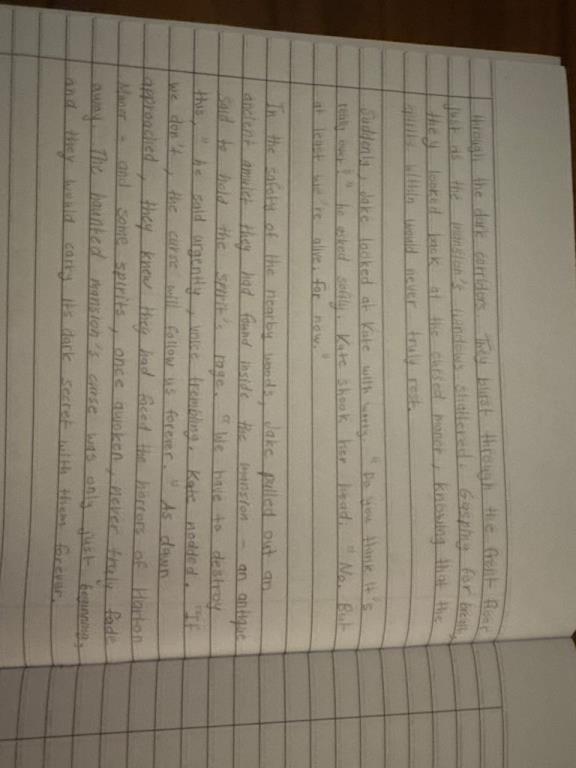 through the dark corridors. They burst through the front door
just as the mansion's windows shattered. Gasping for breath,
they looked back at the cursed manor, knowing that the
spirits within would never truly rest.
Suddenly, Jake looked at Kate with worry. "Do you think it's
really over?" he asked softly. Kate shook her head. "No. But
at least we're alive, for now."
In the safety of the nearby woods, Jake pulled out an
ancient amulet they had found inside the mansion - an antique
said to hold the spirit's rage. "We have to destroy
this," he said urgently, voice trembling. Kate nodded. "If
we don't, the curse will follow us forever." As dawn
approached, they knew they had faced the horrors of Harlon
Manor - and some spirits, once awoken, never truly fade
away. The haunted mansion's curse was only just beginning,
and they would carry its dark secret with them forever.